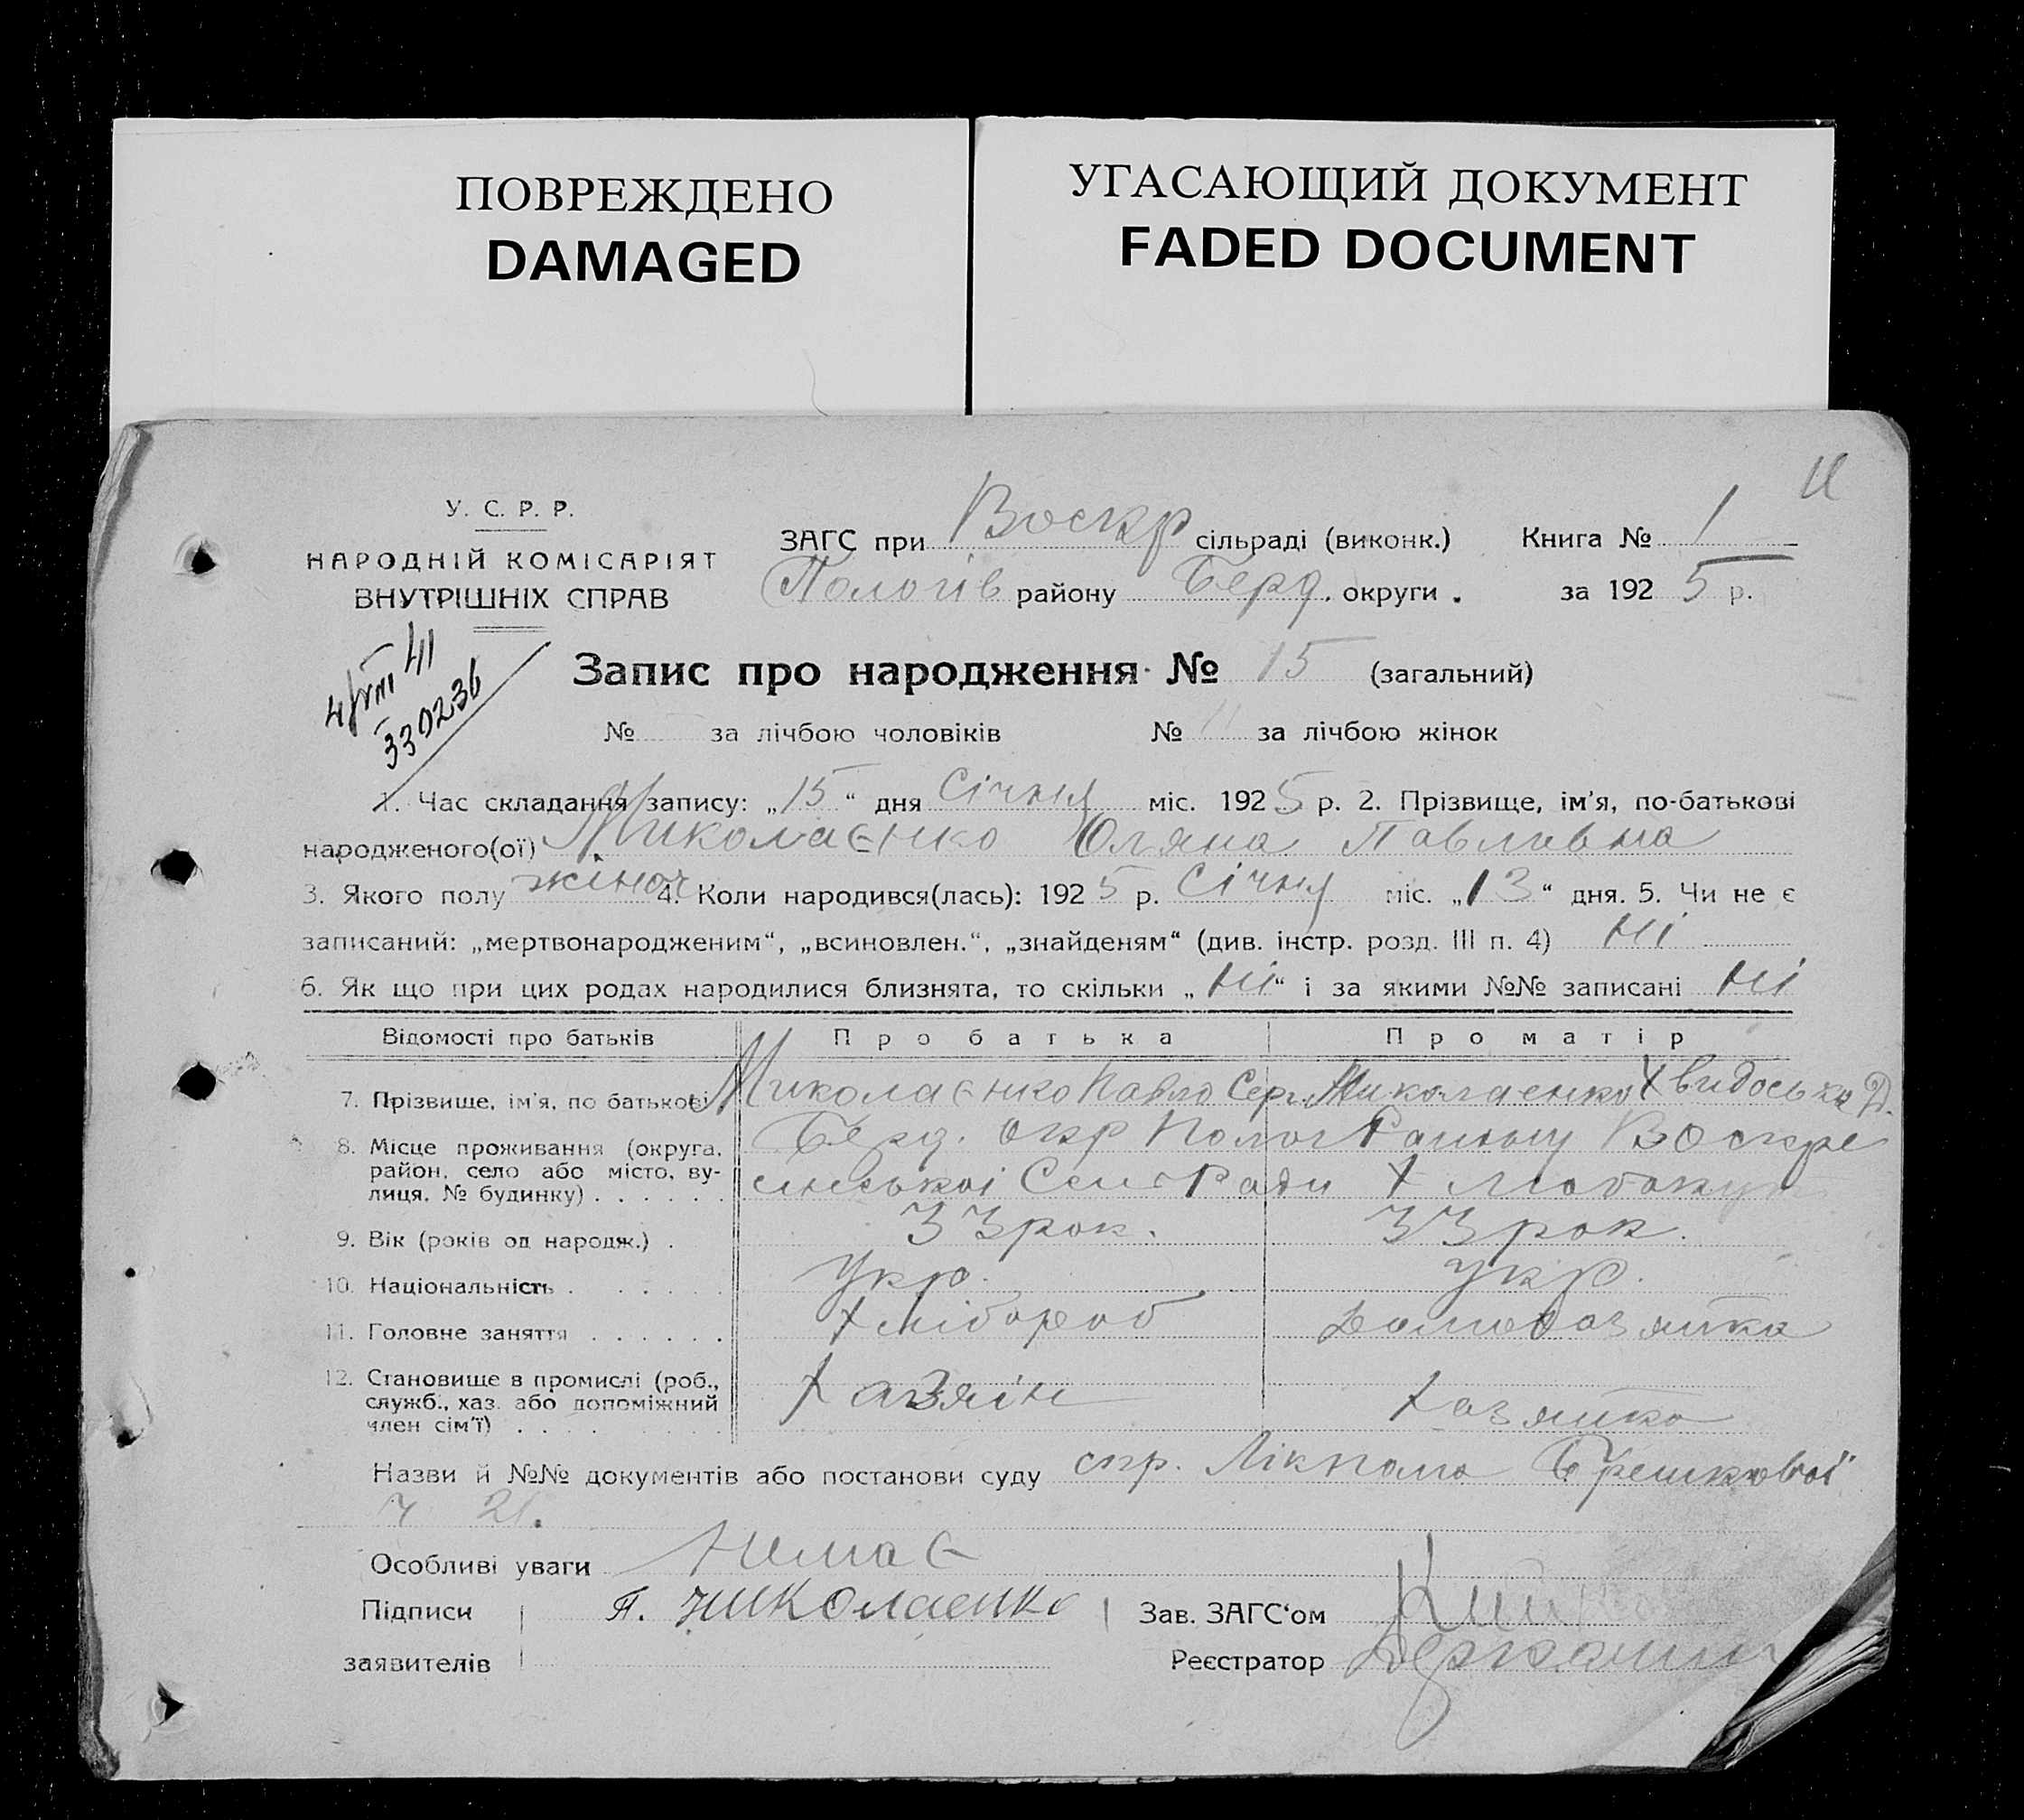 ПОВРЕЖДЕНО
DAMAGED
УГАСАЮЩИЙ ДОКУМЕНТ
FADED DOCUMENT
У. С. Р. Р.
НАРОДНІЙ КОМІСАРІЯТ
ВНУТРІШНІХ СПРАВ
4/VIII 41
330236
11
ЗАГС при Воскр сільраді (виконк.) Книга № 1
Пологів району Берд. округи. за 1925 р.
Запис про народження № 15 (загальний)
№ за лічбою чоловіків № 11 за лічбою жінок
1. Час складання запису: „15“ дня Січня міс. 1925 р. 2. Прізвище, ім'я, по-батькові
народженого(ої) Миколаєнко Оляна Павливна
3. Якого полу жіноч 4. Коли народився(лась): 1925 р. Січня міс. „13“ дня. 5. Чи не є
записаний: „мертвонародженим“, „всиновлен.“, „знайденям“ (див. інстр. розд. III п. 4) Ні
6. Як що при цих родах народилися близнята, то скільки „Ні“ і за якими №№ записані Ні
Відомості про батьків Про батька Про матір
7. Прізвище, ім'я, по батькові Миколаєнко Павло Серг. Миколаенко Хвидоська Д.
8. Місце проживання (округа, Берд. окр Полог Району Воскре
район, село або місто, ву- синськоі Сель Ради х
лиця, № будинку)
9. Вік (років од народж.) 33 рок. 33 рок.
10. Національність укр. укр.
11. Головне заняття Хлібороб домохазяйка
12. Становище в промислі (роб., Хазяін Хазяйка
служб., хаз. або допоміжний
член сім'ї)
Назви й №№ документів або постанови суду спр. Лікпома Брешкової
ч 21.
Особливі уваги Немає
Підписи П. Николаенко Зав. ЗАГС'ом
заявителів Реєстратор